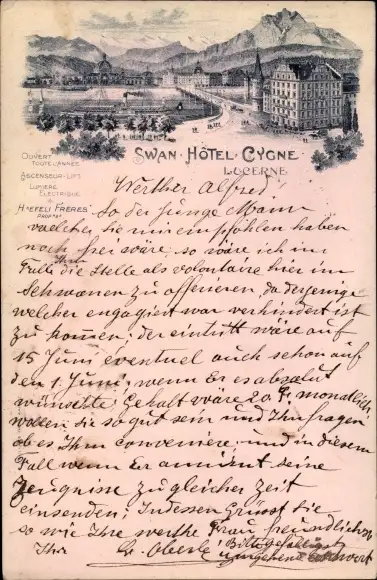 SWAN-HÔTEL-CYGNE
LUCERNE
OUVERT
TOUTE L'ANNÉE
ASCENSEUR-LIFT
LUMIÈRE
ELECTRIQUE
HAEFELI FRÈRES
PROP.RES
Werther Alfred!
So der junge Mann
welcher Sie mir empfohlen haben
noch frei wäre so wäre ich im
Falle Ihm die Stelle als volontaire hier im
Schwanen zu offerieren, da derjenige
welcher engagiert war verhindert ist
zu kommen; der eintritt wäre auf
15 Juni eventuel auch schon auf
den 1. Juni, wenn Er es absolut
wünschte; Gehalt wäre 20 F. monatlich
wollen Sie so gut sein und Ihn fragen
ob es Ihm conveniere und in diesem
Fall wenn Er annimt seine
Zeugnisse zu gleicher Zeit
einsenden; Indessen grüsst Sie
so wie Ihre werthe Frau freundlichst
Ihr Oberle Bitte gefälligst
umgehend Antwort